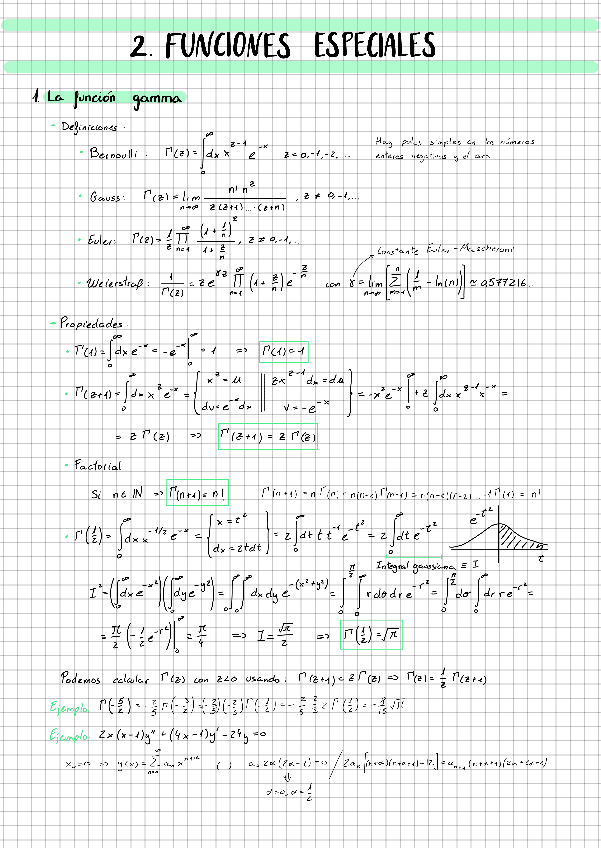 2. FUNCIONES ESPECIALES
1. La función gamma
- Definiciones:
· Bernoulli: Γ(z) = ∫₀^∞ dx x^(z-1) e^(-x) z = 0, -1, -2, ... Hay polos simples en los números
enteros negativos y el cero
· Gauss: Γ(z) = lim_(n→∞) n! n^z / z(z+1)...(z+n), z ≠ 0, -1, ...
· Euler: Γ(z) = 1/z ∏_(n=1)^∞ (1 + 1/n)^z / (1 + z/n), z ≠ 0, -1, ...
Constante Euler-Mascheroni
· Weierstraß: 1/Γ(z) = z e^(γz) ∏_(n=1)^∞ (1 + z/n) e^(-z/n) con γ = lim_(n→∞) [∑_(m=1)^n (1/m - ln(n))] ≈ 0,577216...
- Propiedades:
· Γ(1) = ∫₀^∞ dx e^(-x) = -e^(-x) |₀^∞ = 1 ⇒ Γ(1) = 1
· Γ(z+1) = ∫₀^∞ dx x^z e^(-x) = { x^z = u || z x^(z-1) dx = du
dv = e^(-x) dx || v = -e^(-x) } = -x^z e^(-x) |₀^∞ + z ∫₀^∞ dx x^(z-1) e^(-x) =
= z Γ(z) ⇒ Γ(z+1) = z Γ(z)
- Factorial
Si n ∈ ℕ ⇒ Γ(n+1) = n! Γ(n+1) = n Γ(n) = n(n-1) Γ(n-1) = n(n-1)(n-2)...1 Γ(1) = n!
· Γ(1/2) = ∫₀^∞ dx x^(-1/2) e^(-x) = { x = t²
dx = 2tdt } = 2 ∫₀^∞ dt t t^(-1) e^(-t²) = 2 ∫₀^∞ dt e^(-t²)
e^(-t²)
t
Integral gaussiana ≡ I
I² = (∫₀^∞ dx e^(-x²)) (∫₀^∞ dy e^(-y²)) = ∫₀^∞ ∫₀^∞ dx dy e^(-(x²+y²)) = ∫₀^(π/2) ∫₀^∞ r dσ dr e^(-r²) = ∫₀^(π/2) dσ ∫₀^∞ dr r e^(-r²) =
= π/2 (-1/2 e^(-r²)) |₀^∞ = π/4 ⇒ I = √π/2 ⇒ Γ(1/2) = √π
Podemos calcular Γ(z) con z<0 usando: Γ(z+1) = z Γ(z) ⇒ Γ(z) = 1/z Γ(z+1)
Ejemplo Γ(-5/2) = -2/5 Γ(-3/2) = (-2/5)(-2/3) Γ(-1/2) = -2/5 2/3 2 Γ(1/2) = -8/15 √π
Ejemplo 2x(x-1)y'' + (4x-1)y' - 24y = 0
x₀ = 0 ⇒ y(x) = ∑ aₙ x^(n+α)
α = 0, α = 1/2